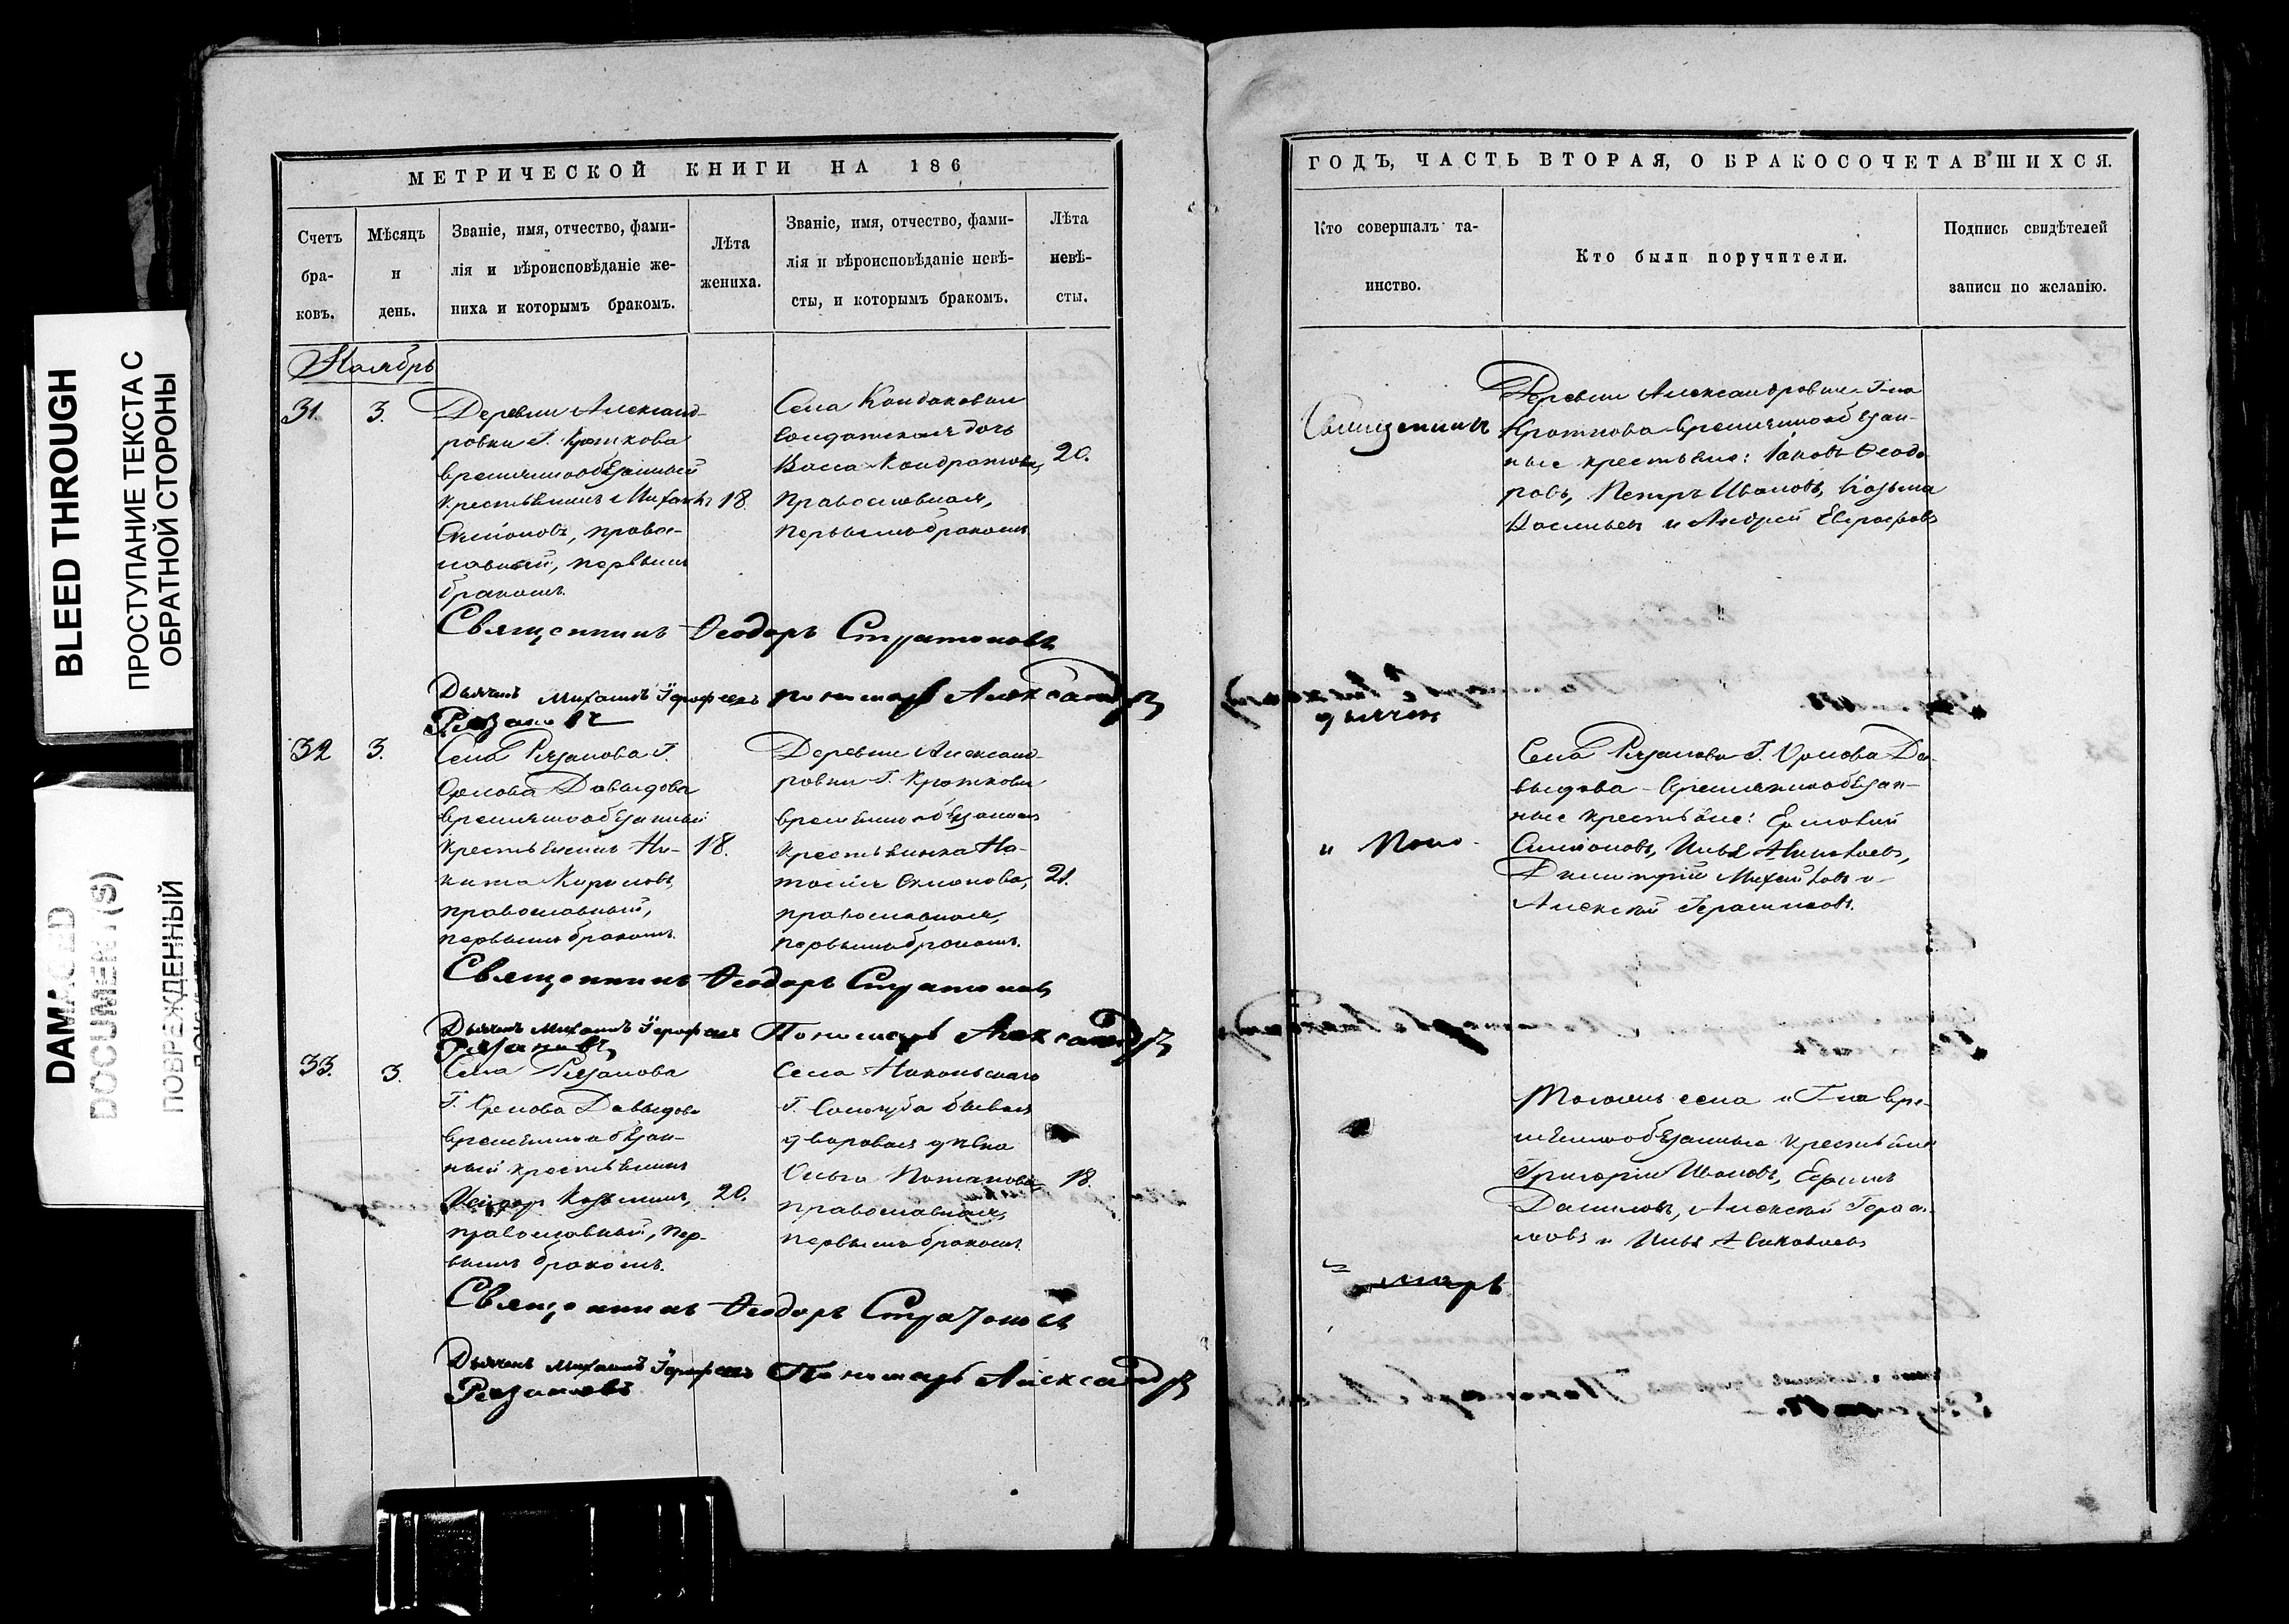 BLEED THROUGH
ПРОСТУПАНИЕ ТЕКСТА С
ОБРАТНОЙ СТОРОНЫ
DAMAGED
DOCUMENT (S)
ПОВРЕЖДЕННЫЙ
МЕТРИЧЕСКОЙ КНИГИ НА 186
Счетъ
бра-
ковъ.
Мѣсяцъ
и
день.
Званіе, имя, отчество, фами-
лія и вѣроисповѣданіе же-
ниха и которымъ бракомъ.
Лѣта
жениха.
Званіе, имя, отчество, фами-
лія и вѣроисповѣданіе невѣ-
сты, и которымъ бракомъ.
Лѣта
невѣ-
сты.
Ноябрь
31.
3.
Деревни Александ-
ровки Г. Кроткова
временнообязанный
крестьянинъ Михаилъ
Симіоновъ, право-
славный, первымъ
бракомъ.
18.
Села Кондаковки
солдатская дочь
Васса Кондратова,
православная,
первымъ бракомъ
20.
Священникъ Ѳеодоръ Стратоновъ
Дьячекъ Михаилъ Ерофеевъ пономарь Александръ
Рязановъ
32
3.
Села Рязанова Г.
Орлова Давыдова
временнообязанный
крестьянинъ Ни-
кита Кириловъ,
православный,
первымъ бракомъ.
18.
Деревни Александ-
ровки Г. Кроткова
временнообязанная
крестьянка На-
талія Симонова,
православная,
первымъ бракомъ.
21.
Священникъ Ѳеодоръ Стратоновъ
Дьячекъ Михаилъ Ерофеевъ Пономарь Александръ
Рязановъ
33.
3.
Села Рязанова
Г. Орлова Давыдова
временнообязан-
ный крестьянинъ
Козьминъ,
православный, пер-
вымъ бракомъ.
20.
Села Никольскаго
Г. Сологуба бывшая
дворовая дѣвка
Ольга Потапова,
православная,
первымъ бракомъ.
18.
Священникъ Ѳеодоръ Стратоновъ
Дьячекъ Михаилъ Ерофеевъ Пономарь Александръ
Рязановъ
ГОДЪ, ЧАСТЬ ВТОРАЯ, О БРАКОСОЧЕТАВШИХСЯ.
Кто совершалъ та-
инство.
Кто были поручители.
Подпись свидѣтелей
записи по желанію.
Священникъ
дьячек
и Поно-
марь
Деревни Александровки Г-на
Кроткова временнообязан-
ные крестьяне: Іаковъ Ѳеодо-
ровъ, Петръ Ивановъ, Козьма
Васильевъ и Андрей Евграфовъ
Села Рязанова Г. Орлова Да-
выдова временнообязан-
ные крестьяне: Ермолай
Симіоновъ, Илья Николаевъ,
Димитрій Михайловъ и
Алексѣй Герасимовъ.
Тогоже села и Г-на вре-
меннообязанные крестьяне
Григорій Ивановъ, Ефимъ
Даниловъ, Алексѣй Гераси-
мовъ и Илья Николаевъ